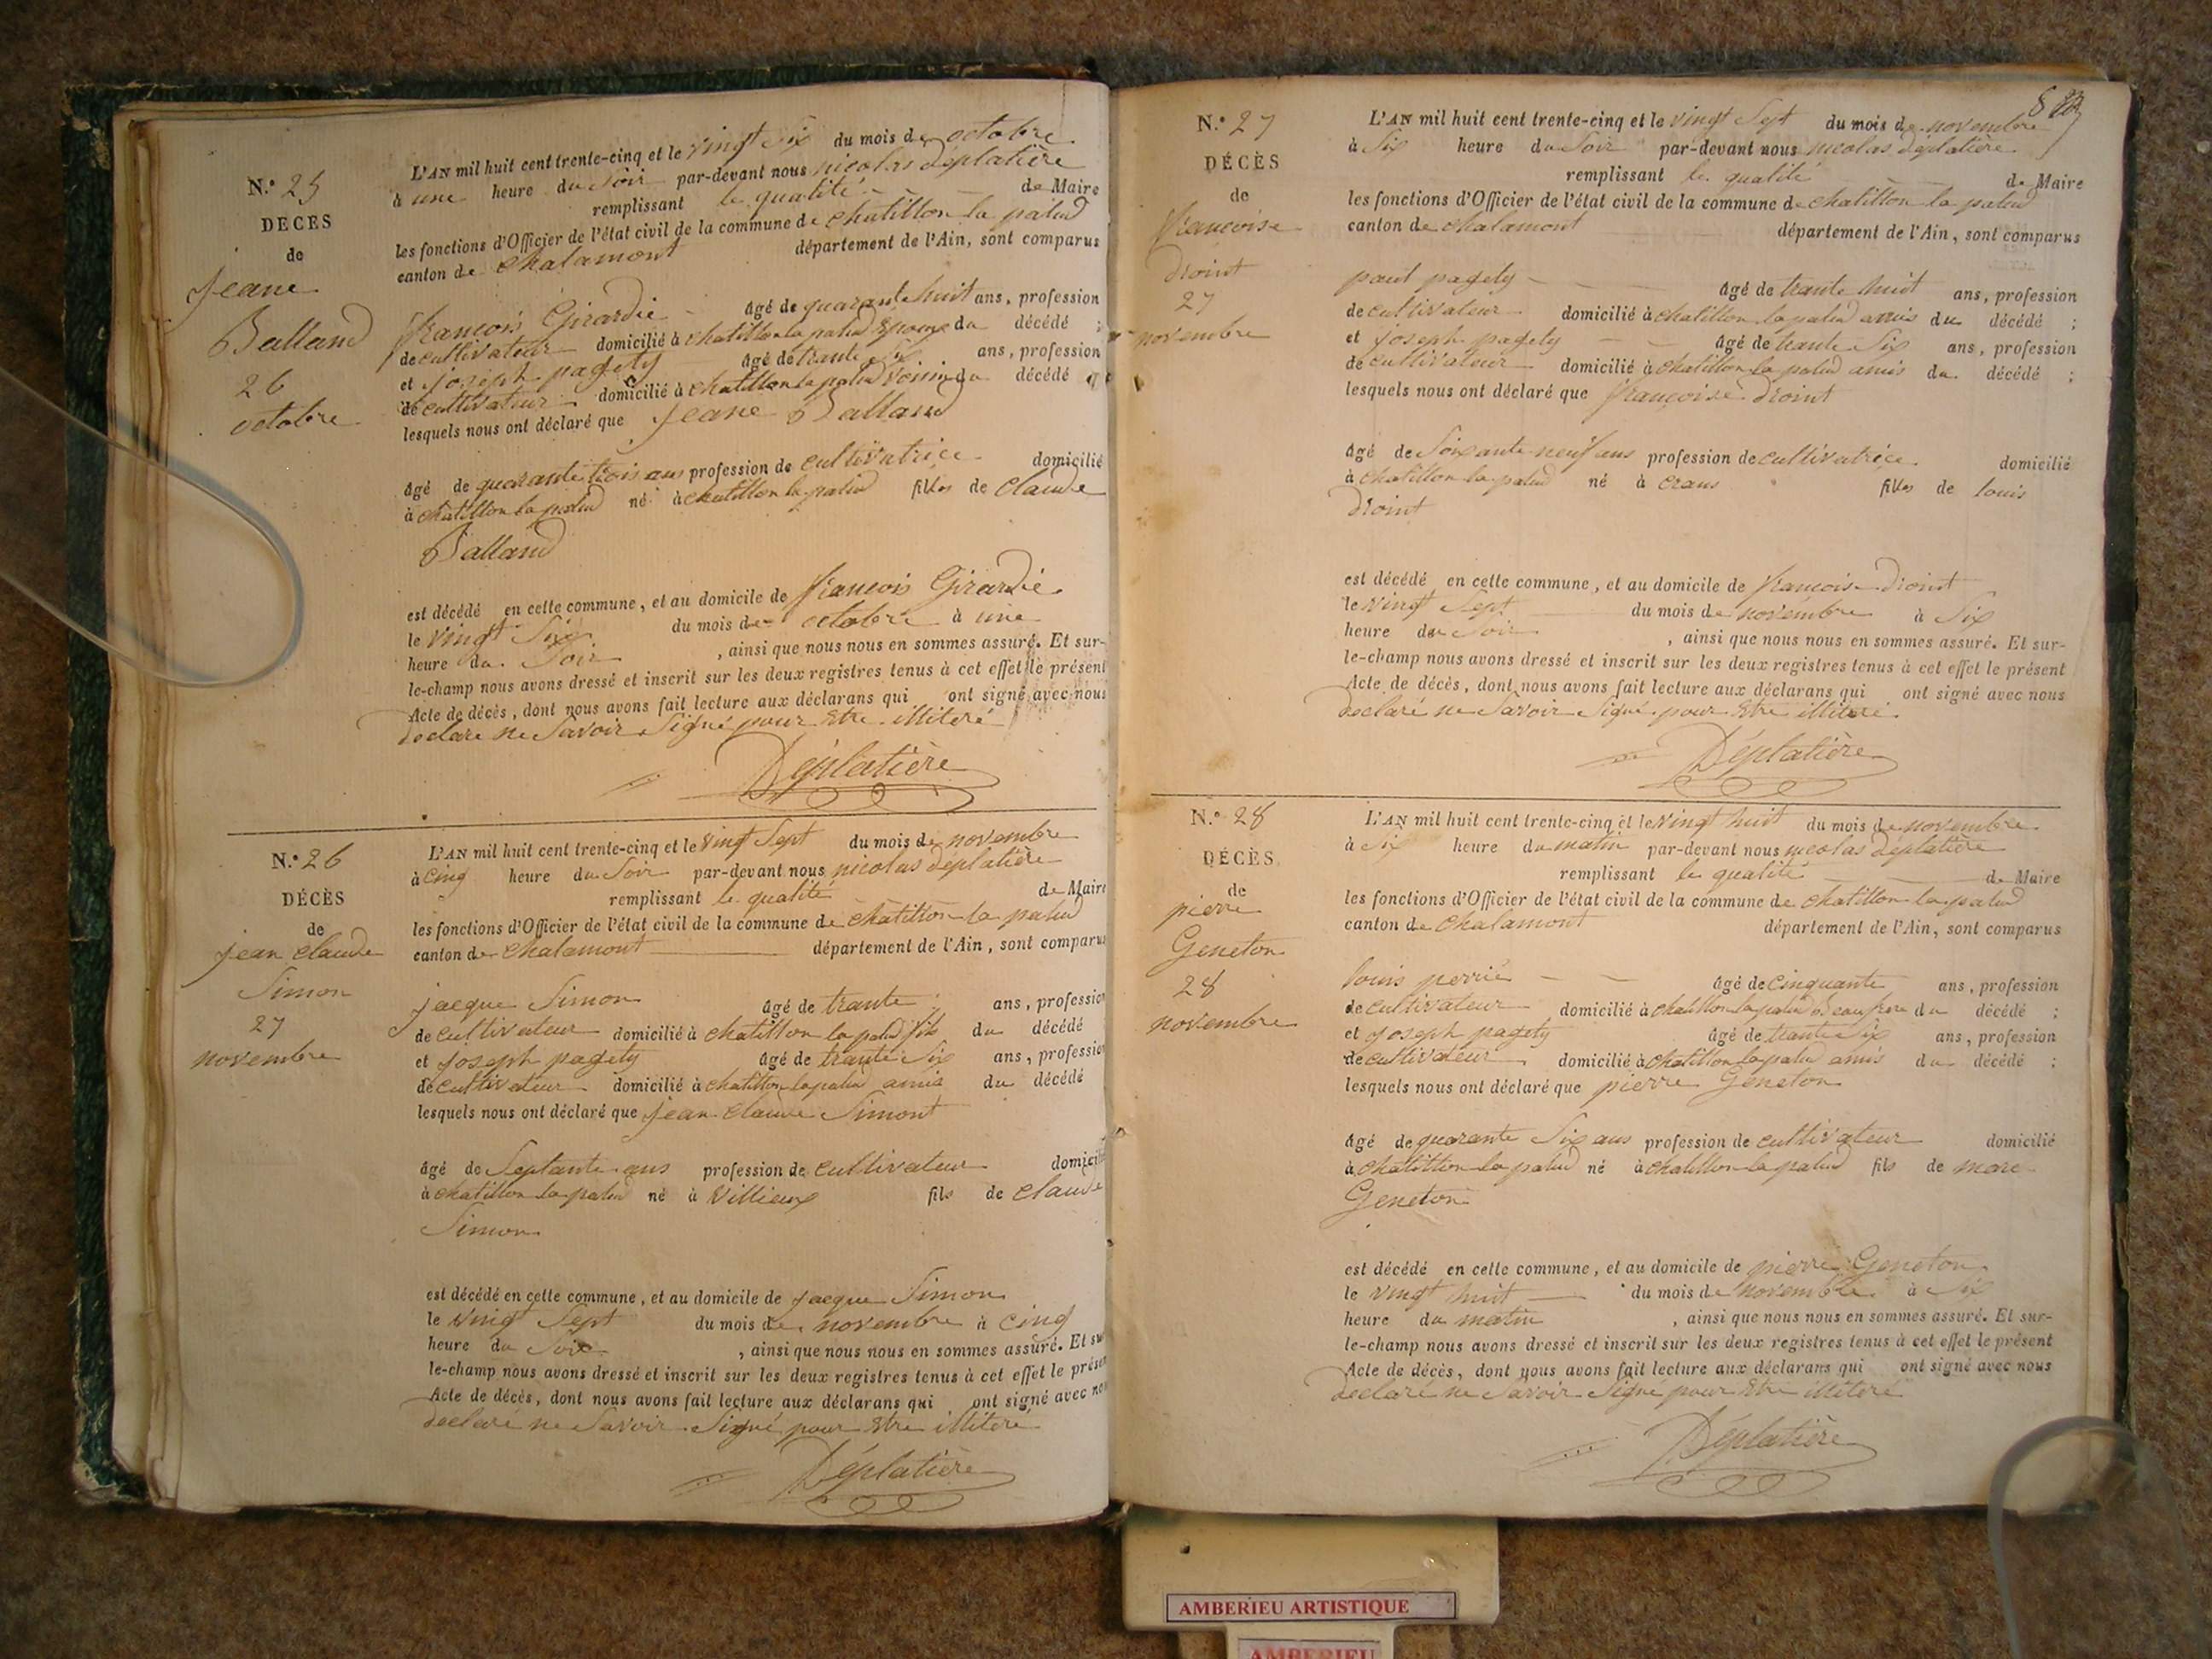 N.° 25
DÉCÈS
de
Jeane
Balland
26
octobre
L'AN mil huit cent trente-cinq et le vingt Six du mois de octobre
à une heure du Soir par-devant nous nicolas Déplatière
remplissant le qualité de Maire
les fonctions d'Officier de l'état civil de la commune de chatillon la palud
canton de chalamont département de l'Ain, sont comparus
francois Girardie âgé de quarante huit ans, profession
de cultivateur domicilié à chatillon la palud Epoux du décédé ;
et joseph pagety âgé de trante Six ans, profession
de cultivateur domicilié à chatillon la palud voisin du décédé
lesquels nous ont déclaré que Jeane Balland
âgé de quarante trois ans profession de cultivatrice domicilié
à chatillon la palud né à chatillon la palud filles de claude
Balland
est décédé en cette commune, et au domicile de francois Girardie
le vingt Six du mois de octobre à une
heure du Soir , ainsi que nous nous en sommes assuré. Et sur-
le-champ nous avons dressé et inscrit sur les deux registres tenus à cet effet le présent
Acte de décès, dont nous avons fait lecture aux déclarans qui ont signé avec nous
declaré ne Savoir Signé pour Etre illiteré
Déplatière
N.° 26
DÉCÈS
de
jean claude
Simon
27
novembre
L'AN mil huit cent trente-cinq et le vingt Sept du mois de novembre
à cinq heure du Soir par-devant nous nicolas déplatière
remplissant le qualité de Maire
les fonctions d'Officier de l'état civil de la commune de chatillon la palud
canton de chalamont département de l'Ain, sont comparus
jacque Simon âgé de trante ans, profession
de cultivateur domicilié à chatillon la palud fils du décédé
et joseph pagety âgé de trante Six ans, profession
de cultivateur domicilié à chatillon la palud amis du décédé
lesquels nous ont déclaré que jean claude Simont
âgé de Septante ans profession de cultivateur domicilié
à chatillon la palud né à villieux fils de claude
Simon
est décédé en cette commune, et au domicile de jacque Simon
le vingt Sept du mois de novembre à cinq
heure du Soir , ainsi que nous nous en sommes assuré. Et sur
le-champ nous avons dressé et inscrit sur les deux registres tenus à cet effet le présen
Acte de décès, dont nous avons fait lecture aux déclarans qui ont signé avec nous
declaré ne Savoir Signé pour Etre illiteré
Déplatière
8
N.° 27
DÉCÈS
de
francoise
droint
27
novembre
L'AN mil huit cent trente-cinq et le vingt Sept du mois de novembre
à Six heure du Soir par-devant nous nicolas déplatière
remplissant le qualité de Maire
les fonctions d'Officier de l'état civil de la commune de chatillon la palud
canton de chalamont département de l'Ain, sont comparus
paul pagety âgé de trante huit ans, profession
de cultivateur domicilié à chatillon la palud amis du décédé ;
et joseph pagety âgé de trante Six ans, profession
de cultivateur domicilié à chatillon la palud amis du décédé ;
lesquels nous ont déclaré que françoise droint
âgé de Soixante neuf ans profession de cultivatrice domicilié
à chatillon la palud né à crans filles de louis
droint
est décédé en cette commune, et au domicile de francoise droint
le vingt Sept du mois de novembre à Six
heure du Soir , ainsi que nous nous en sommes assuré. Et sur-
le-champ nous avons dressé et inscrit sur les deux registres tenus à cet effet le présent
Acte de décès, dont nous avons fait lecture aux déclarans qui ont signé avec nous
declaré ne Savoir Signé pour Etre illiteré
Déplatière
N.° 28
DÉCÈS
de
pierre
Geneton
28
novembre
L'AN mil huit cent trente-cinq et le vingt huit du mois de novembre
à Six heure du matin par-devant nous nicolas déplatière
remplissant le qualité de Maire
les fonctions d'Officier de l'état civil de la commune de chatillon la palud
canton de chalamont département de l'Ain, sont comparus
louis perrié âgé de cinquante ans, profession
de cultivateur domicilié à chatillon la palud beaufrere du décédé ;
et joseph pagety âgé de trante Six ans, profession
de cultivateur domicilié à chatillon la palud amis du décédé ;
lesquels nous ont déclaré que pierre Geneton
âgé de quarante Six ans profession de cultivateur domicilié
à chatillon la palud né à chatillon la palud fils de marc
Geneton
est décédé en cette commune, et au domicile de pierre Geneton
le vingt huit du mois de novembre à Six
heure du matin , ainsi que nous nous en sommes assuré. Et sur-
le-champ nous avons dressé et inscrit sur les deux registres tenus à cet effet le présent
Acte de décès, dont nous avons fait lecture aux déclarans qui ont signé avec nous
declaré ne Savoir Signé pour Etre illiteré
Déplatière
AMBERIEU ARTISTIQUE
AMBERIEU